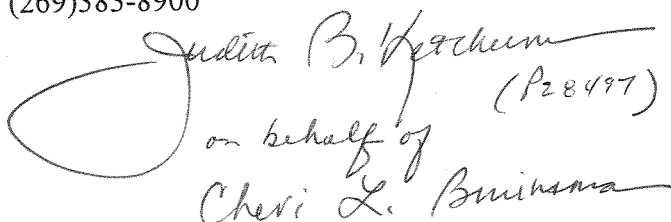 (269)383-8900
Judith B. Ketchum
(P28497)
on behalf of
Cheri L. Bruinsma